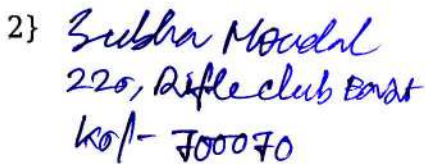 2} Subha Mondal
220, Rifle club East
Kol- 700070